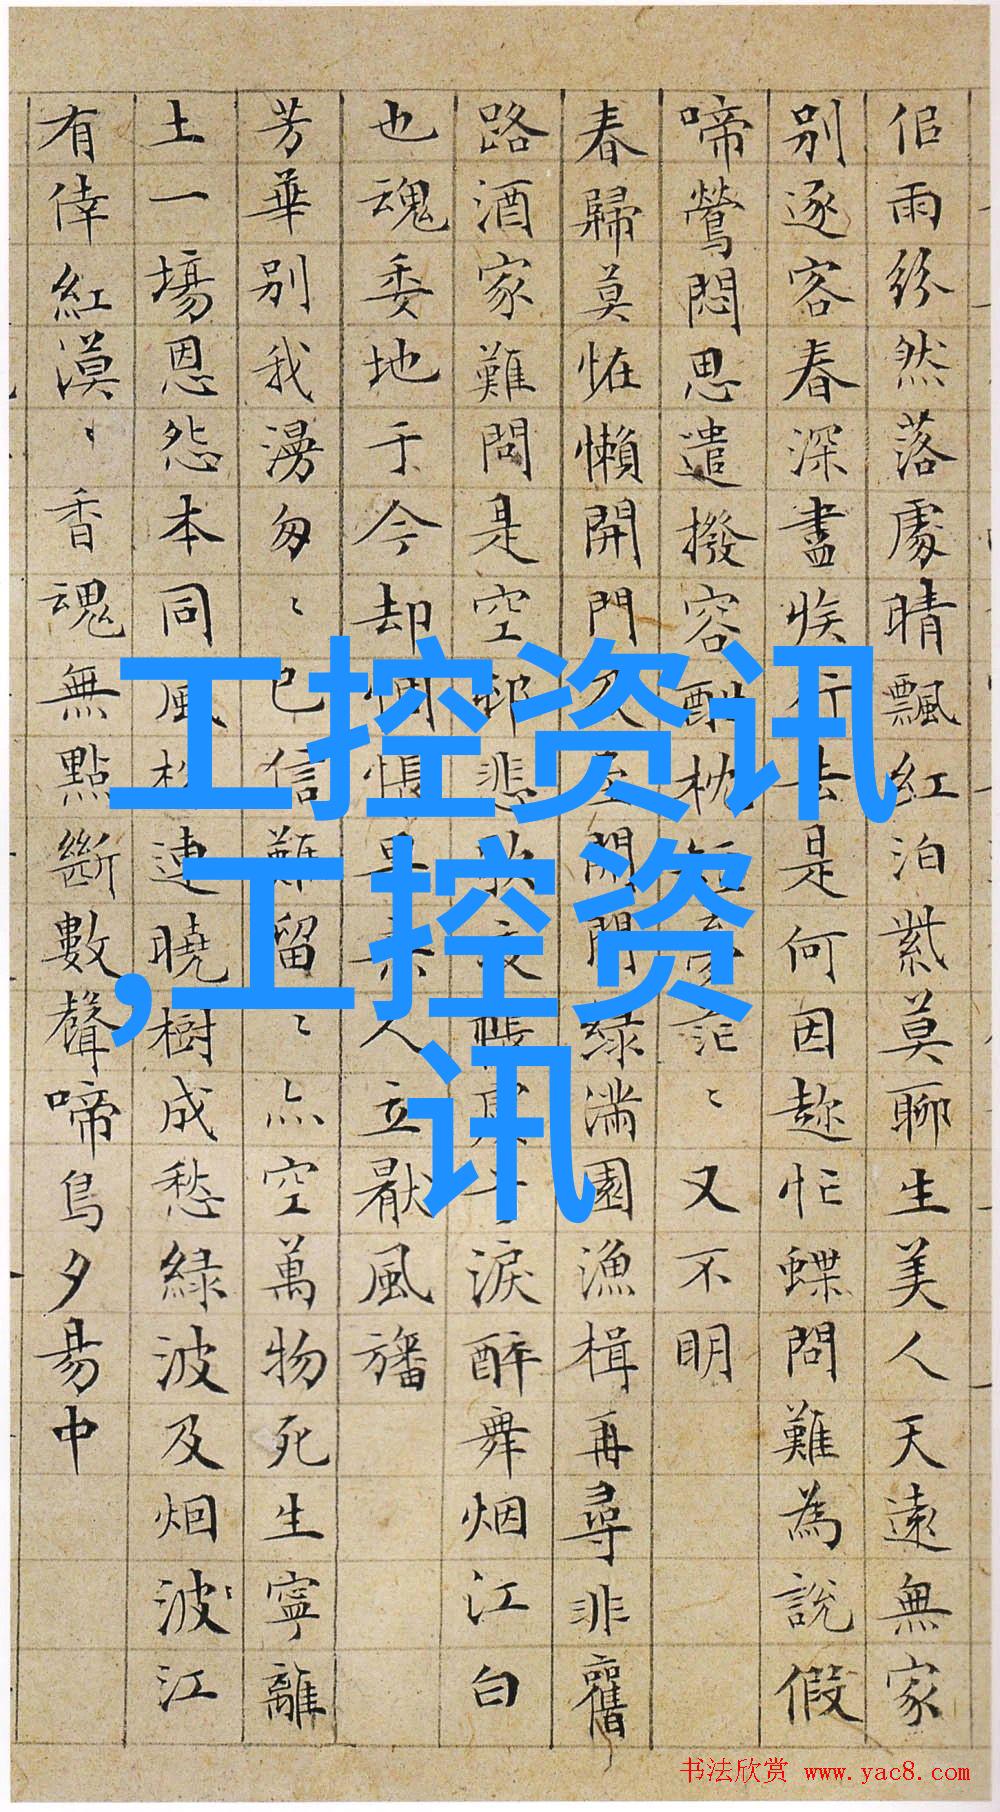 佀雨紛然落處晴飄紅泊紫莫聊生美人天遠無家
別逐客春深盡族行去是何因趂忙蝶問難為說假
啼鶯悶思遣撥容酣枕茫、又不明
春歸莫怪懶開門至開門綠滿園漁楫再尋非舊
路酒家難問是空邨悲淚醉舞烟江白
也魂委地于今却惆悵人立厭風旛
芳華別我漫匆、已信難留、亦空萬物死生寧離
土一場恩怨本同風株連曉樹成愁綠波及烟波江
有倖紅漠、香魂無點斷數聲啼鳥夕昜中
工控资讯
,工控资
讯
书法欣赏 www.yac8.com